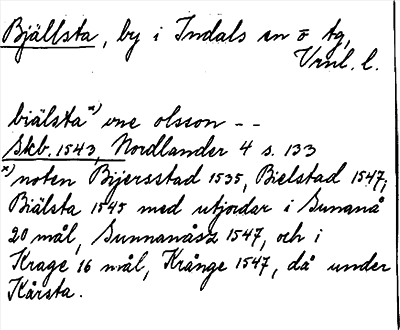 Bjällsta, by i Indals sn o tg,
Vrnl. l.
biälsta*) one olsson --
Skb. 1543, Nordlander 4 s. 133
*) noten Bijersstad 1535, Bielstad 1547,
Biälsta 1545 med utjordar i Gunanå
20 mål, Gunnanåsz 1547, och i
Krage 16 mål, Krånge 1547, då under
Kårsta.